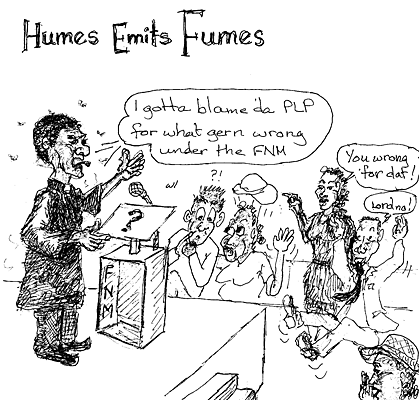 Humes Emits Fumes
I gotta blame 'da PLP
for what gern wrong
under the FNM
You wrong
for dat!
Lord no!
?!
?
FNM